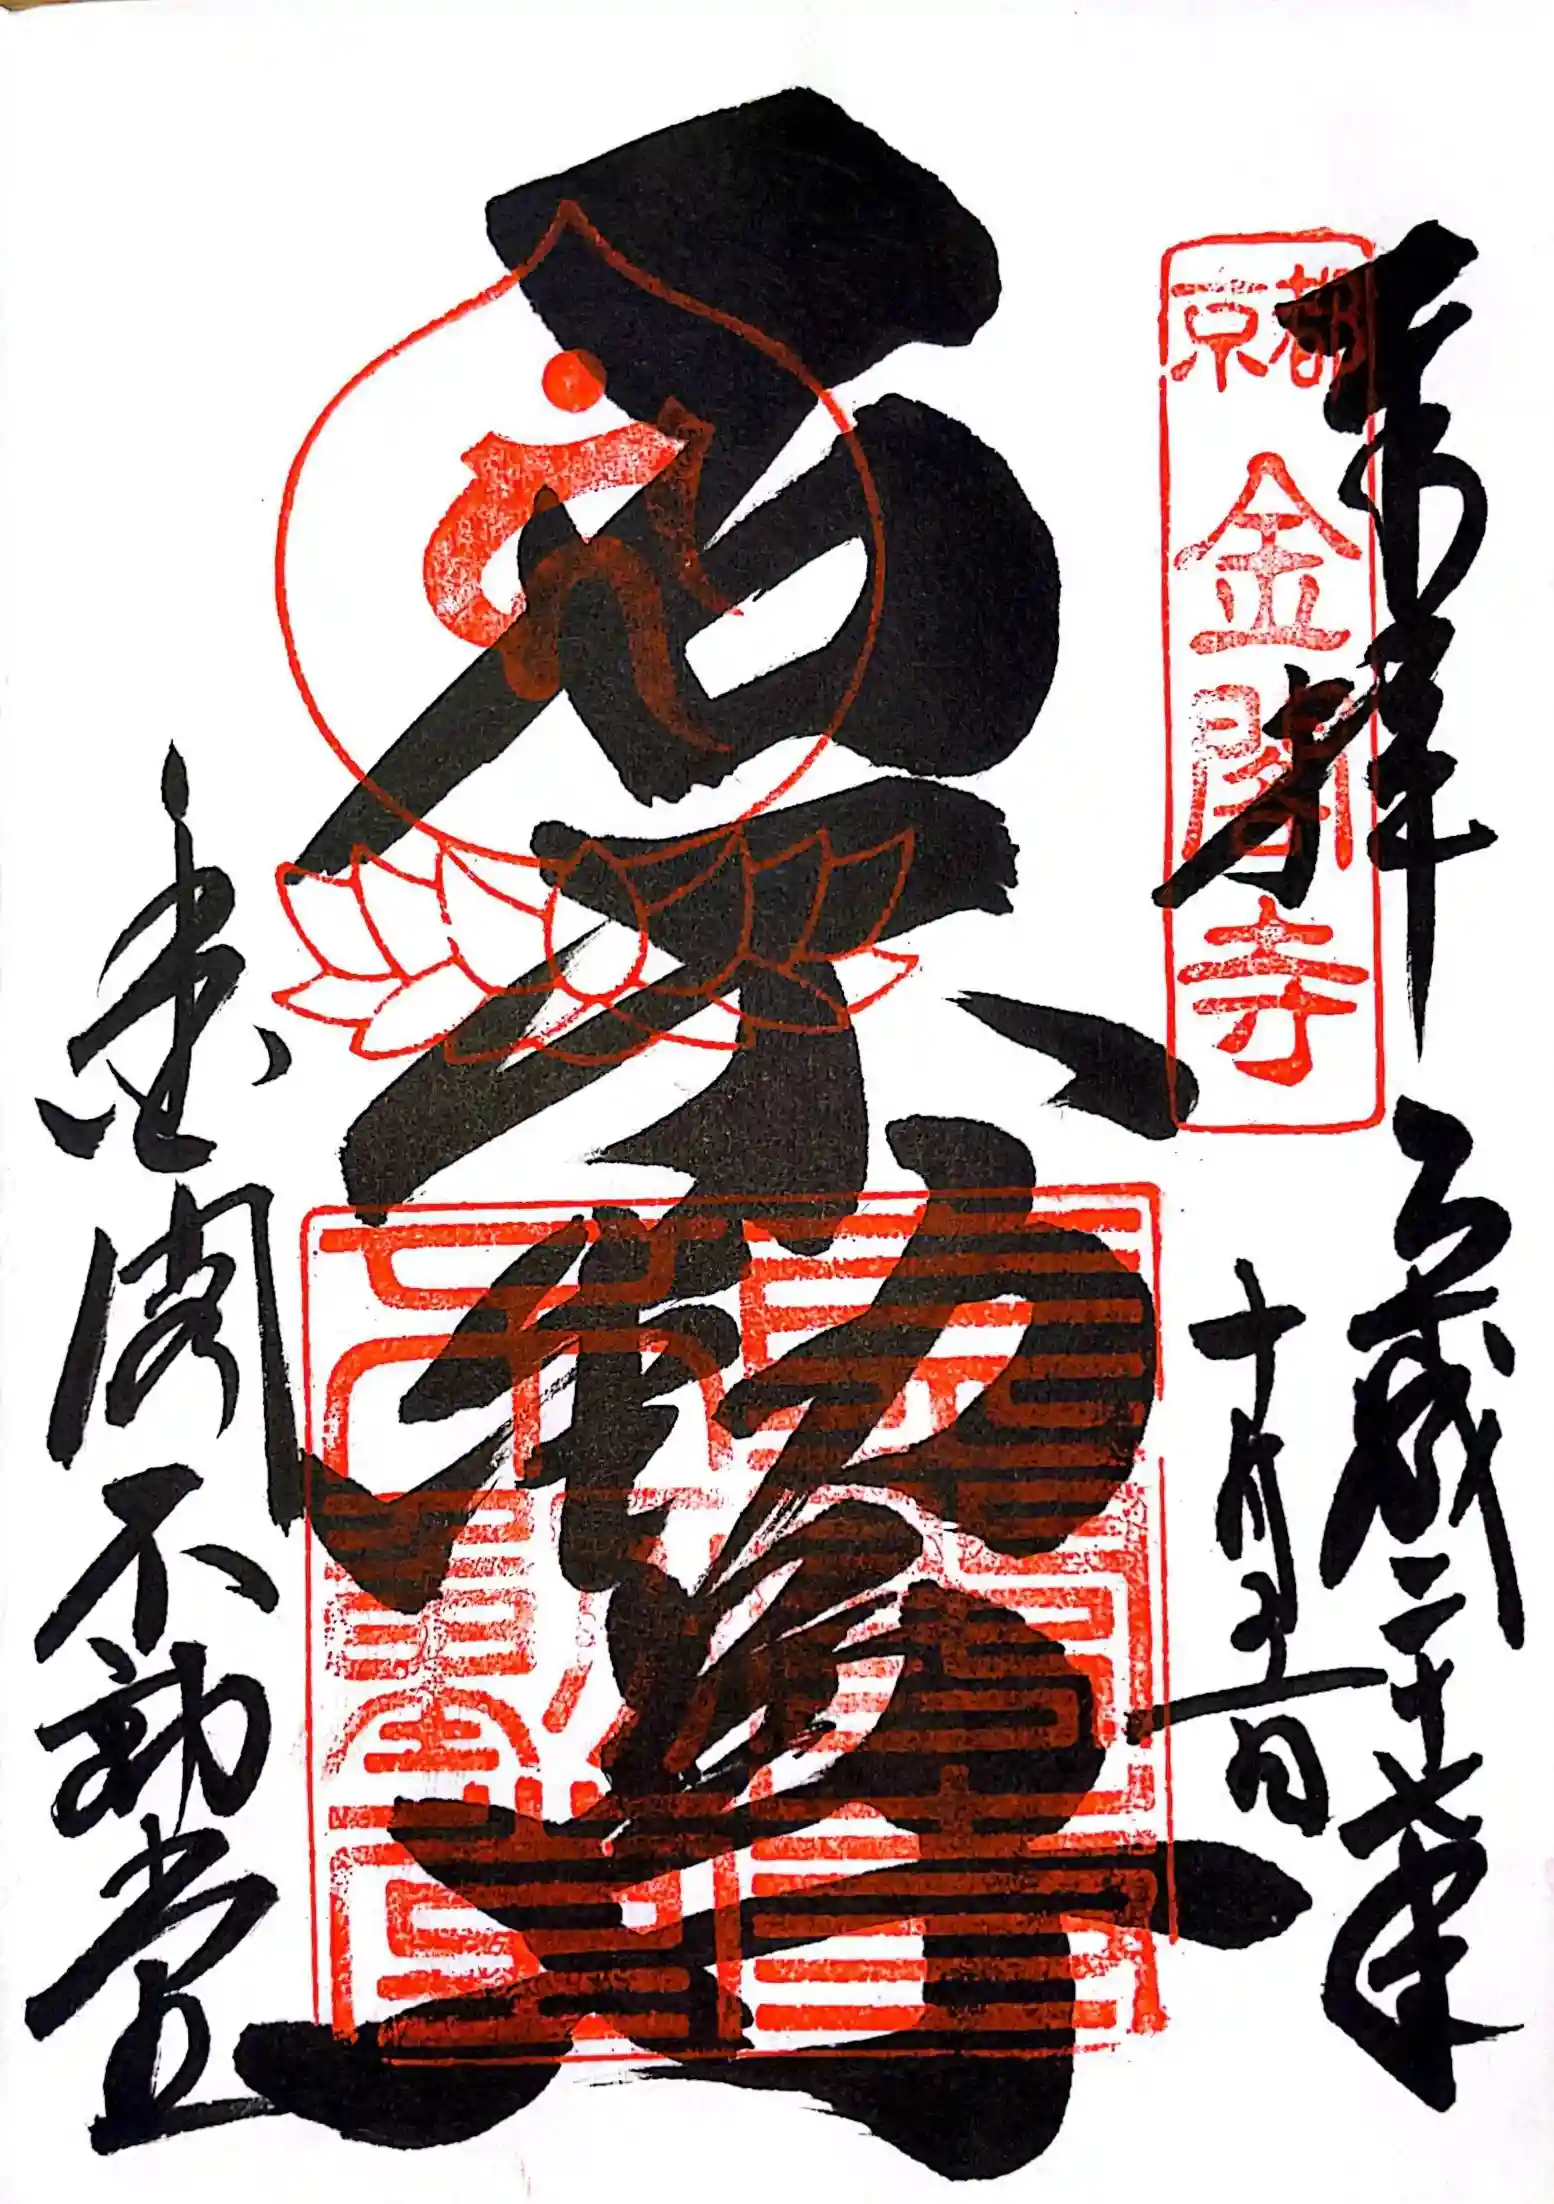 奉拝
平成二十七年
十月五日
京都
金閣寺
石不動尊
金閣不動堂